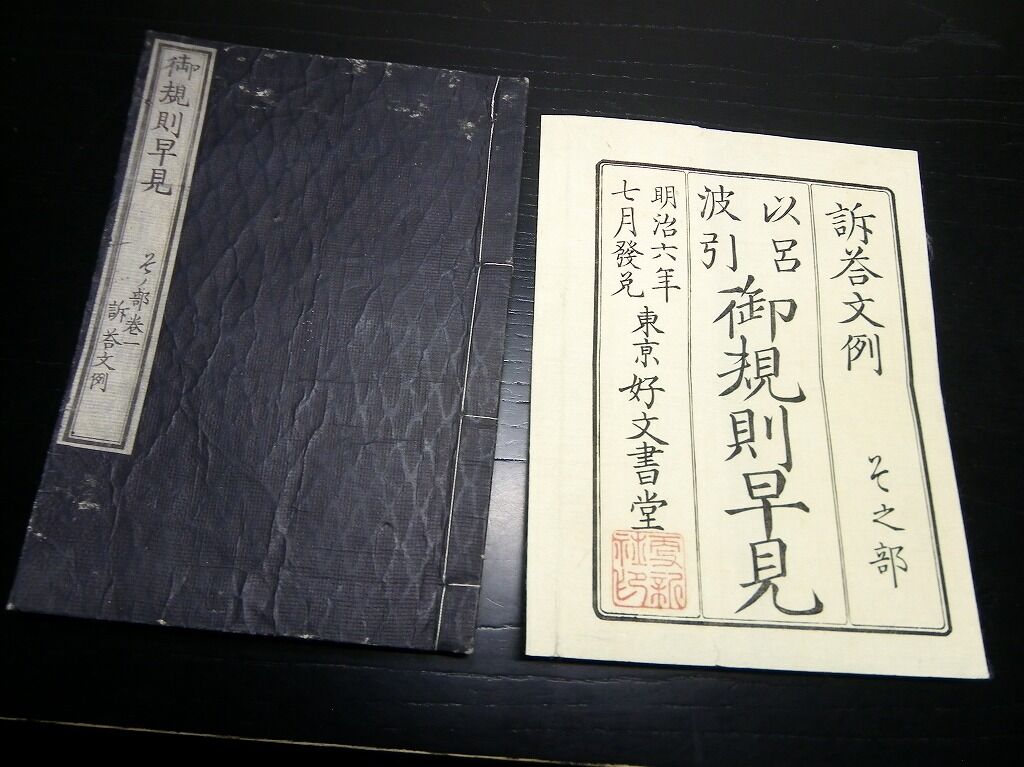 御規則早見
そノ部卷一
訴荅文例
訴荅文例
そ之部
以呂
波引
御規則早見
明治六年
七月發兌
東京好文書堂